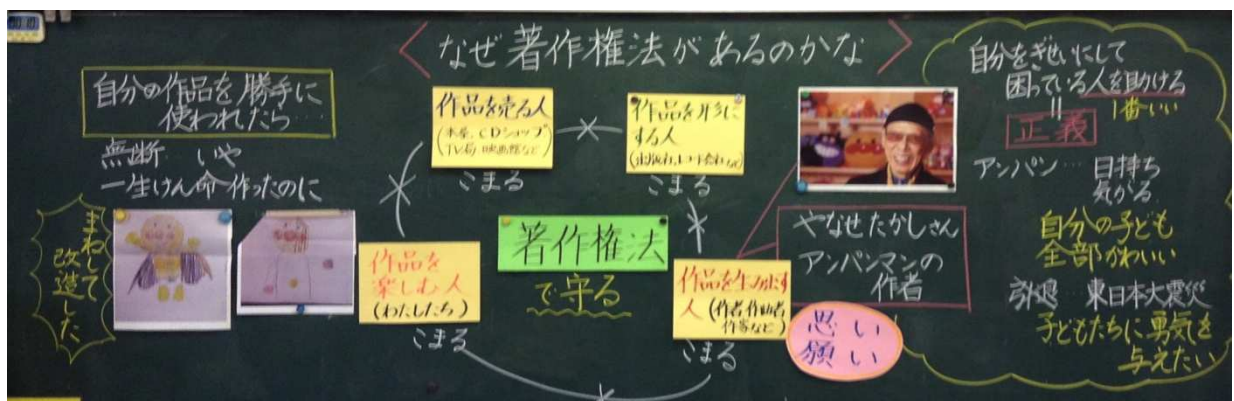 なぜ著作権法があるのかな
自分の作品を勝手に
使われたら…
無断 いや
一生けん命作ったのに
まねて
改造した
作品を売る人
(本屋、CDショップ
TV局、映画館など)
こまる
作品を形に
する人
(出版社、レコード会社など)
こまる
著作権法
で守る
作品を
楽しむ人
(わたしたち)
こまる
作品を生み出す
人(作者、作曲者
作家など)
こまる
思い
願い
やなせたかしさん
アンパンマンの
作者
自分をぎせいにして
困っている人を助ける
1番いい
=
正義
アンパン… 日持ち
気がる
自分の子ども
全部かわいい
引退… 東日本大震災
子どもたちに勇気を
与えたい